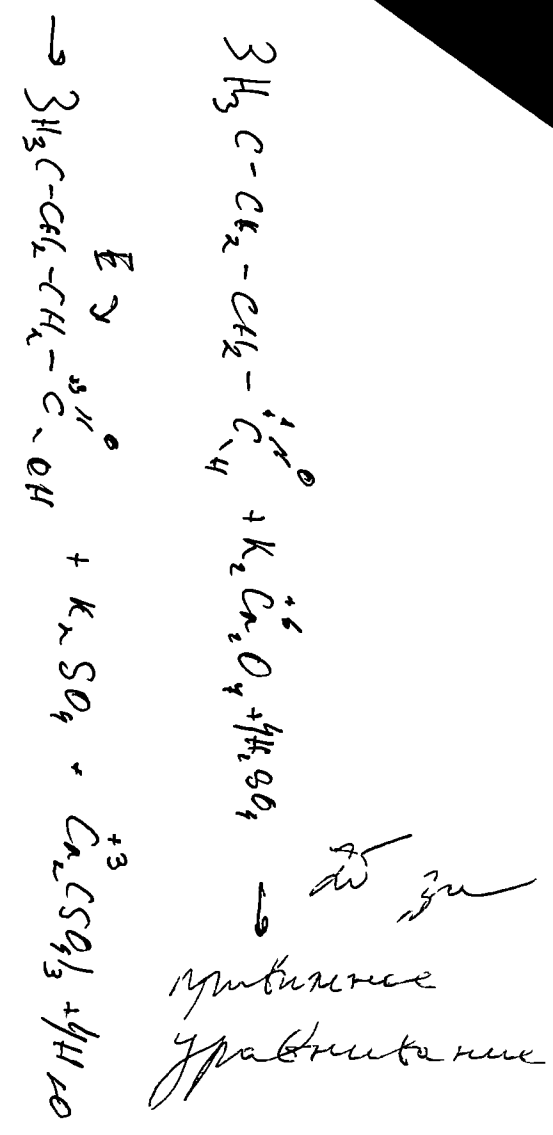 3H₃C-CH₂-CH₂-C⁺¹(=O)-H + K₂Cr₂⁺⁶O₇ + 4H₂SO₄ →
→ 3H₃C-CH₂-CH₂-C⁺³(=O)-OH + K₂SO₄ + Cr₂⁺³(SO₄)₃ + 4H₂O
за
правильное
уравнивание